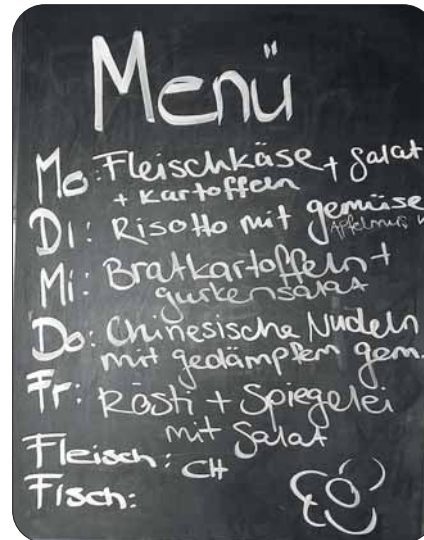 Menü
Mo: Fleischkäse + Salat
+ Kartoffeln
Di: Risotto mit gemüse
Apfelmus
Mi: Bratkartoffeln +
gurkensalat
Do: Chinesische Nudeln
mit gedämpftem gem.
Fr: Rösti + Spiegelei
mit Salat
Fleisch: CH
Fisch: